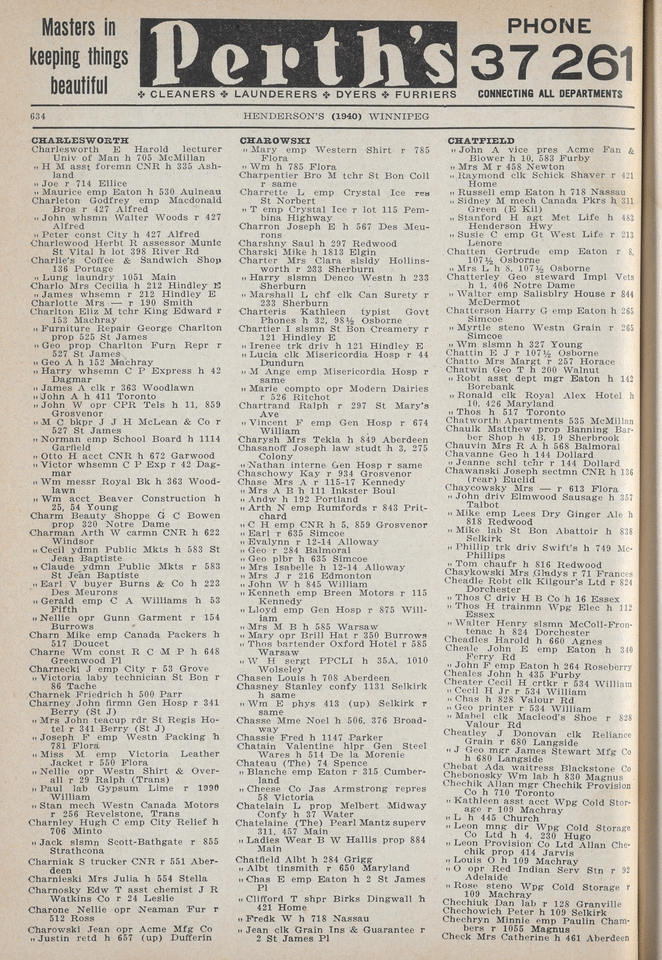 Masters in
keeping things
beautiful
Perth's
CLEANERS ✤ LAUNDERERS ✤ DYERS ✤ FURRIERS
PHONE
37 261
CONNECTING ALL DEPARTMENTS
634
HENDERSON'S (1940) WINNIPEG
CHARLESWORTH
Charlesworth E Harold lecturer
Univ of Man h 705 McMillan
„ H M asst foremn CNR h 335 Ash-
land
„ Joe r 714 Ellice
„ Maurice emp Eaton h 530 Aulneau
Charleton Godfrey emp Macdonald
Bros r 427 Alfred
„ John whsmn Walter Woods r 427
Alfred
„ Peter const City h 427 Alfred
Charlewood Herbt R assessor Munic
St Vital h lot 398 River Rd
Charlie's Coffee & Sandwich Shop
136 Portage
„ Lung laundry 1051 Main
Charlo Mrs Cecilia h 212 Hindley E
„ James whsemn r 212 Hindley E
Charlotte Mrs — r 190 Smith
Charlton Eliz M tchr King Edward r
153 Machray
„ Furniture Repair George Charlton
prop 525 St James
„ Geo prop Charlton Furn Repr r
527 St James
„ Geo A h 152 Machray
„ Harry whsemn C P Express h 42
Dagmar
„ James A clk r 363 Woodlawn
„ John A h 411 Toronto
„ John W opr CPR Tels h 11, 859
Grosvenor
„ M C bkpr J J H McLean & Co r
527 St James
„ Norman emp School Board h 1114
Garfield
„ Otto H acct CNR h 672 Garwood
„ Victor whsemn C P Exp r 42 Dag-
mar
„ Wm messr Royal Bk h 363 Wood-
lawn
„ Wm acct Beaver Construction h
25, 54 Young
Charm Beauty Shoppe G C Bowen
prop 320 Notre Dame
Charman Arth W carmn CNR h 622
Windsor
„ Cecil ydmn Public Mkts h 583 St
Jean Baptiste
„ Claude ydmn Public Mkts r 583
St Jean Baptiste
„ Earl V buyer Burns & Co h 223
Des Meurons
„ Gerald emp C A Williams h 53
Fifth
„ Nellie opr Gunn Garment r 154
Burrows
Charn Mike emp Canada Packers h
517 Doucet
Charne Wm const R C M P h 648
Greenwood Pl
Charnecki J emp City r 53 Grove
„ Victoria laby technician St Bon r
86 Tache
Charnek Friedrich h 500 Parr
Charney John firmn Gen Hosp r 341
Berry (St J)
„ Mrs John teacup rdr St Regis Ho-
tel r 341 Berry (St J)
„ Joseph F emp Westn Packing h
781 Flora
„ Miss M emp Victoria Leather
Jacket r 550 Flora
„ Nellie opr Westn Shirt & Over-
all r 29 Ralph (Trans)
„ Paul lab Gypsum Lime r 1990
William
„ Stan mech Westn Canada Motors
r 256 Revelstone, Trans
Charnley Hugh C emp City Relief h
706 Minto
„ Jack slsmn Scott-Bathgate r 855
Strathcona
Charniak S trucker CNR r 551 Aber-
deen
Charnieski Mrs Julia h 554 Stella
Charnosky Edw T asst chemist J R
Watkins Co r 24 Leslie
Charone Nellie opr Neaman Fur r
512 Ross
Charowski Jean opr Acme Mfg Co
„ Justin retd h 657 (up) Dufferin
CHAROWSKI
„ Mary emp Western Shirt r 785
Flora
„ Wm h 785 Flora
Charpentier Bro M tchr St Bon Coll
r same
Charrette L emp Crystal Ice res
St Norbert
„ T emp Crystal Ice r lot 115 Pem-
bina Highway
Charron Joseph E h 567 Des Meu-
rons
Charshny Saul h 297 Redwood
Charski Mike h 1813 Elgin
Charter Mrs Clara slsldy Hollins-
worth r 233 Sherburn
„ Harry slsmn Denco Westn h 233
Sherburn
„ Marshall L chf clk Can Surety r
233 Sherburn
Charteris Kathleen typist Govt
Phones h 32, 98½ Osborne
Chartier I slsmn St Bon Creamery r
121 Hindley E
„ Irenee trk driv h 121 Hindley E
„ Lucia clk Misericordia Hosp r 44
Dundurn
„ M Ange emp Misericordia Hosp r
same
„ Marie compto opr Modern Dairies
r 526 Ritchot
Chartrand Ralph r 297 St Mary's
Ave
„ Vincent F emp Gen Hosp r 674
William
Charysh Mrs Tekla h 849 Aberdeen
Chasanoff Joseph law studt h 3, 275
Colony
„ Nathan interne Gen Hosp r same
Chaschowy Kay r 934 Grosvenor
Chase Mrs A r 115-17 Kennedy
„ Mrs A B h 111 Inkster Boul
„ Andw h 192 Portland
„ Arth N emp Rumfords r 843 Prit-
chard
„ C H emp CNR h 5, 859 Grosvenor
„ Earl r 635 Simcoe
„ Evalynn r 12-14 Alloway
„ Geo r 284 Balmoral
„ Geo plbr h 635 Simcoe
„ Mrs Isabelle h 12-14 Alloway
„ Mrs J r 216 Edmonton
„ John W h 845 William
„ Kenneth emp Breen Motors r 115
Kennedy
„ Lloyd emp Gen Hosp r 875 Will-
iam
„ Mrs M B h 585 Warsaw
„ Mary opr Brill Hat r 350 Burrows
„ Thos bartender Oxford Hotel r 585
Warsaw
„ W H sergt PPCLI h 35A, 1010
Wolseley
Chasen Louis h 708 Aberdeen
Chasney Stanley confy 1131 Selkirk
h same
„ Wm E phys 413 (up) Selkirk r
same
Chasse Mme Noel h 506, 376 Broad-
way
Chassie Fred h 1147 Parker
Chatain Valentine hlpr Gen Steel
Wares h 514 De la Morenie
Chateau (The) 74 Spence
„ Blanche emp Eaton r 315 Cumber-
land
„ Cheese Co Jas Armstrong repres
58 Victoria
Chatelain L prop Melbert Midway
Confy h 37 Water
Chatelaine (The) Pearl Mantz superv
311, 457 Main
„ Ladies Wear B W Hallis prop 884
Main
Chatfield Albt h 284 Grigg
„ Albt tinsmith r 650 Maryland
„ Chas E emp Eaton h 2 St James
Pl
„ Clifford T shpr Birks Dingwall h
421 Home
„ Fredk W h 718 Nassau
„ Jean clk Grain Ins & Guarantee r
2 St James Pl
CHATFIELD
„ John A vice pres Acme Fan &
Blower h 10, 583 Furby
„ Mrs M r 458 Newton
„ Raymond clk Schick Shaver r 421
Home
„ Russell emp Eaton h 718 Nassau
„ Sidney M mech Canada Pkrs h 311
Green (E Kil)
„ Stanford H agt Met Life h 483
Henderson Hwy
„ Susie C emp Gt West Life r 213
Lenore
Chatten Gertrude emp Eaton r 8,
107½ Osborne
„ Mrs L h 8, 107½ Osborne
Chatterley Geo steward Impl Vets
h 1, 406 Notre Dame
„ Walter emp Salisblry House r 844
McDermot
Chatterson Harry G emp Eaton h 265
Simcoe
„ Myrtle steno Westn Grain r 265
Simcoe
„ Wm slsmn h 327 Young
Chattin E J r 107½ Osborne
Chatto Mrs Margt r 257 Horace
Chatwin Geo T h 200 Walnut
„ Robt asst dept mgr Eaton h 142
Borebank
„ Ronald clk Royal Alex Hotel h
10, 426 Maryland
„ Thos h 517 Toronto
Chatworth Apartments 535 McMillan
Chaulk Matthew prop Banning Bar-
ber Shop h 4B, 19 Sherbrook
Chauvin Mrs R A h 568 Balmoral
Chavanne Geo h 144 Dollard
„ Jeanne schl tchr r 144 Dollard
Chawanski Joseph sectmn CNR h 136
(rear) Euclid
Chaycowsky Mrs — r 613 Flora
„ John driv Elmwood Sausage h 357
Talbot
„ Mike emp Lees Dry Ginger Ale h
818 Redwood
„ Mike lab St Bon Abattoir h 838
Selkirk
„ Phillip trk driv Swift's h 749 Mc-
Phillips
„ Tom chaufr h 816 Redwood
Chaykowski Mrs Gladys r 71 Frances
Cheadle Robt clk Kilgour's Ltd r 824
Dorchester
„ Thos C driv H B Co h 16 Essex
„ Thos H trainmn Wpg Elec h 112
Essex
„ Walter Henry slsmn McColl-Fron-
tenac h 824 Dorchester
Cheadles Harold h 660 Agnes
Cheale John E emp Eaton h 340
Ferry Rd
„ John F emp Eaton h 264 Roseberry
Cheales John h 435 Furby
Cheater Cecil H crtkr r 534 William
„ Cecil H Jr r 534 William
„ Chas h 828 Valour Rd
„ Geo printer r 534 William
„ Mabel clk Macleod's Shoe r 828
Valour Rd
Cheatley J Donovan clk Reliance
Grain r 680 Langside
„ J Geo mgr James Stewart Mfg Co
h 680 Langside
Chebat Ada waitress Blackstone Co
Chebonosky Wm lab h 830 Magnus
Chechik Allan mgr Chechik Provision
Co h 710 Toronto
„ Kathleen asst acct Wpg Cold Stor-
age r 109 Machray
„ L h 445 Church
„ Leon mng dir Wpg Cold Storage
Co Ltd h 4, 230 Hugo
„ Leon Provision Co Ltd Allan Che-
chik prop 414 Jarvis
„ Louis O h 109 Machray
„ O opr Red Indian Serv Stn r 92
Adelaide
„ Rose steno Wpg Cold Storage r
109 Machray
Chechiuk Dan lab r 128 Granville
Chechowich Peter h 109 Selkirk
Chechryn Minnie emp Paulin Cham-
bers r 1055 Magnus
Check Mrs Catherine h 461 Aberdeen